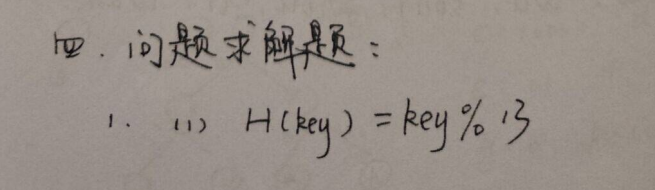 四.问题求解题:
1. (1) H(key) = key % 13